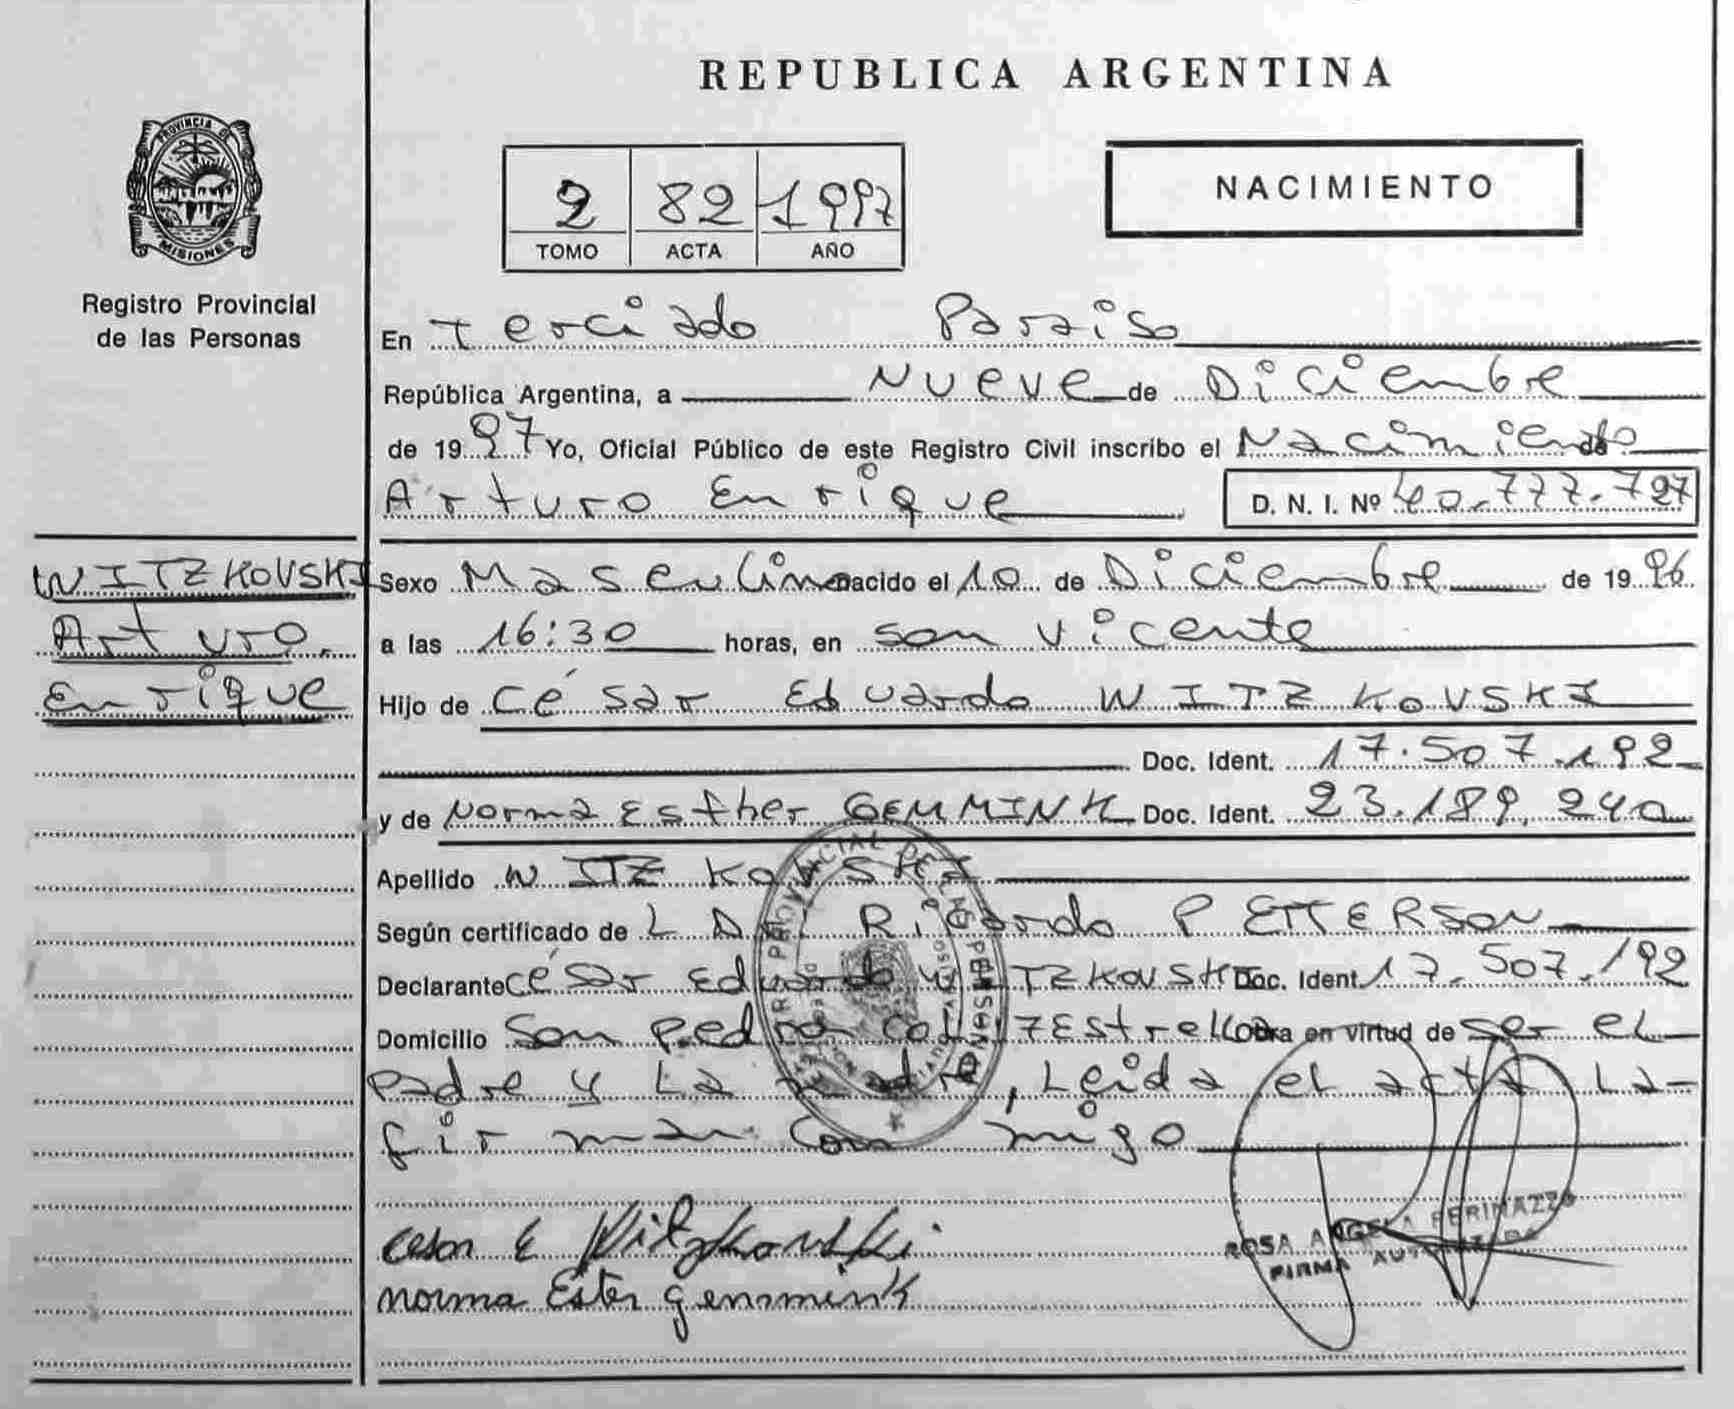 REPUBLICA ARGENTINA
PROVINCIA DE
MISIONES
Registro Provincial
de las Personas
2 82 1997
TOMO ACTA AÑO
NACIMIENTO
En Terciado Paraiso
República Argentina, a Nueve de Diciembre
de 1997 Yo, Oficial Público de este Registro Civil inscribo el Nacimiento de
Arturo Enrique D. N. I. Nº 40.777.727
WITZKOVSKI
Arturo.
Enrique
Sexo Masculino nacido el 10 de Diciembre de 1996.
a las 16:30 horas, en san vicente
Hijo de César Eduardo WITZKOVSKI
Doc. Ident. 17.507.192
y de Norma Esther GEMMINK Doc. Ident. 23.189.240
Apellido WITZKOVSKI
Según certificado de L Dr. Ricardo PETTERSON
Declarante César Eduardo WITZKOVSKI Doc. Ident. 17.507.192
Domicilio San Pedro Estrella Obra en virtud de ser el
Padre y La madre, Leida el acta La
firman con migo
cesar E Witzkovski
norma Ester gemmink
ROSA ANGELA PERINAZZO
FIRMA AUTORIZADA